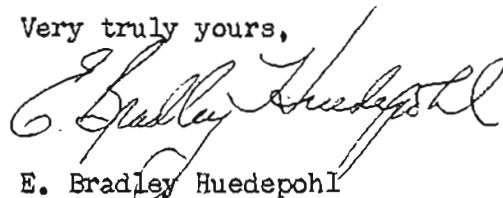 Very truly yours,
E. Bradley Huedepohl
E. Bradley Huedepohl